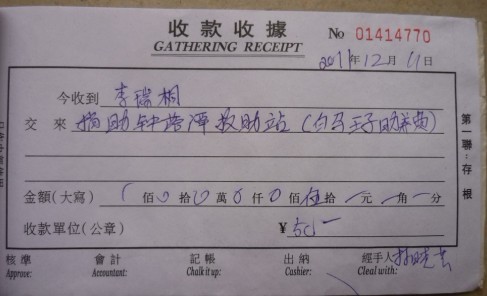 收款收據
GATHERING RECEIPT
No 01414770
2011年12月11日
今收到 李瑞桐
交來 捐助钟落潭救助站(白马王子助养费)
金額(大寫) 佰 拾 萬 仟 佰 伍拾 元 角 分
收款單位(公章) ¥ 50
第一聯:存根
核準 Approve:
會計 Accountant:
記帳 Chalk it up:
出納 Cashier:
經手人 Cleal with: